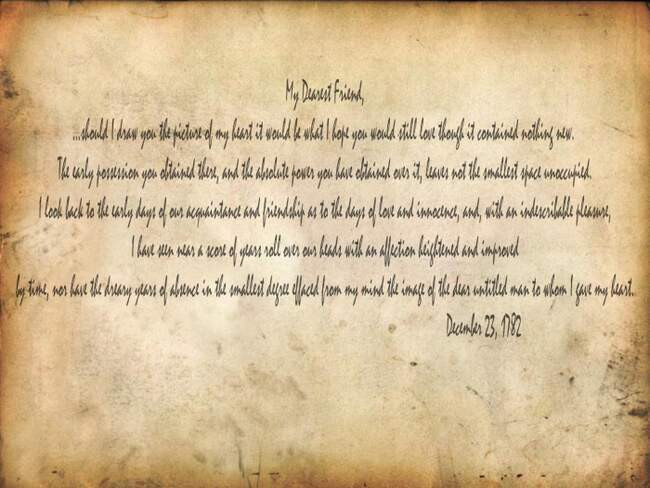 My Dearest Friend,
...should I draw you the picture of my heart it would be what I hope you would still love though it contained nothing new.
The early possession you obtained there, and the absolute power you have obtained over it, leaves not the smallest space unoccupied.
I look back to the early days of our acquaintance and friendship as to the days of love and innocence, and, with an indescribable pleasure,
I have seen near a score of years roll over our heads with an affection heightened and improved
by time, nor have the dreary years of absence in the smallest degree effaced from my mind the image of the dear untitled man to whom I gave my heart.
December 23, 1782